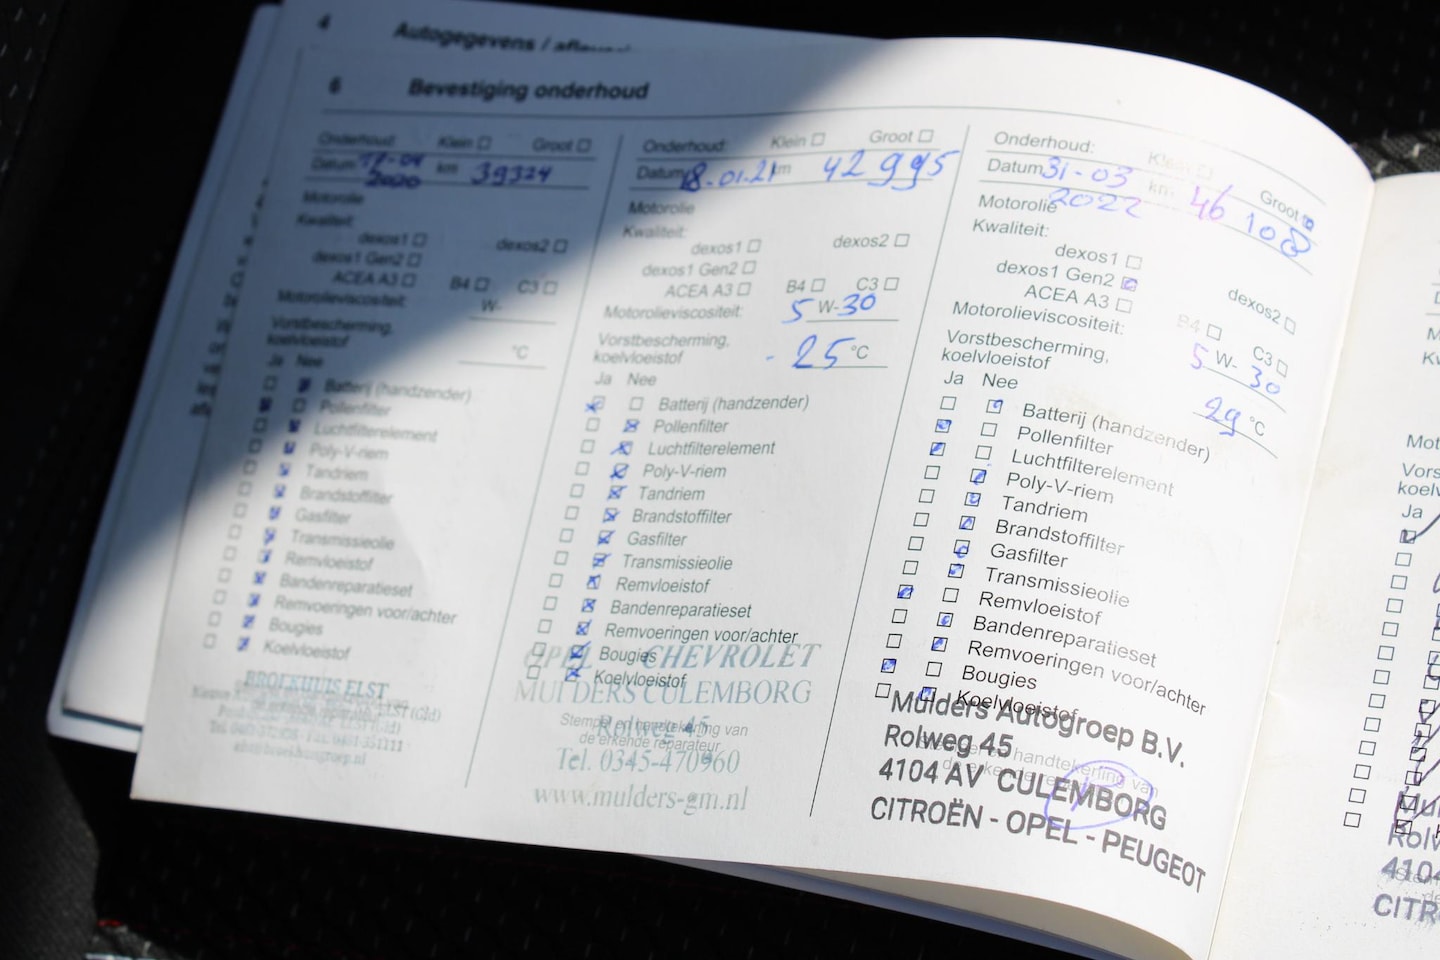 4 Autogegevens /
6 Bevestiging onderhoud
Onderhoud: Klein Groot
Datum 2020 km 39324
Motorolie
Kwaliteit:
dexos1 dexos2
dexos1 Gen2
ACEA A3 B4 C3
Motorolieviscositeit: W-
Vorstbescherming,
koelvloeistof °C
Ja Nee
Batterij (handzender)
Pollenfilter
Luchtfilterelement
Poly-V-riem
Tandriem
Brandstoffilter
Gasfilter
Transmissieolie
Remvloeistof
Bandenreparatieset
Remvoeringen voor/achter
Bougies
Koelvloeistof
BROEKHUIS ELST
Onderhoud: Klein Groot
Datum 18-01-21 km 42995
Motorolie
Kwaliteit:
dexos1 dexos2
dexos1 Gen2
ACEA A3 B4 C3
Motorolieviscositeit: 5 W-30
Vorstbescherming,
koelvloeistof -25 °C
Ja Nee
Batterij (handzender)
Pollenfilter
Luchtfilterelement
Poly-V-riem
Tandriem
Brandstoffilter
Gasfilter
Transmissieolie
Remvloeistof
Bandenreparatieset
Remvoeringen voor/achter
Bougies
Koelvloeistof
OPEL CHEVROLET
MULDERS CULEMBORG
Stempel en handtekening van
de erkende reparateur
Rolweg 45
Tel. 0345-470960
www.mulders-gm.nl
Onderhoud: Klein Groot
Datum 31-03 2022 km 46100
Motorolie
Kwaliteit:
dexos1 dexos2
dexos1 Gen2
ACEA A3 B4 C3
Motorolieviscositeit: 5 W-30
Vorstbescherming,
koelvloeistof 29 °C
Ja Nee
Batterij (handzender)
Pollenfilter
Luchtfilterelement
Poly-V-riem
Tandriem
Brandstoffilter
Gasfilter
Transmissieolie
Remvloeistof
Bandenreparatieset
Remvoeringen voor/achter
Bougies
Koelvloeistof
Mulders Autogroep B.V.
Rolweg 45
4104 AV CULEMBORG
CITROËN - OPEL - PEUGEOT
Ja